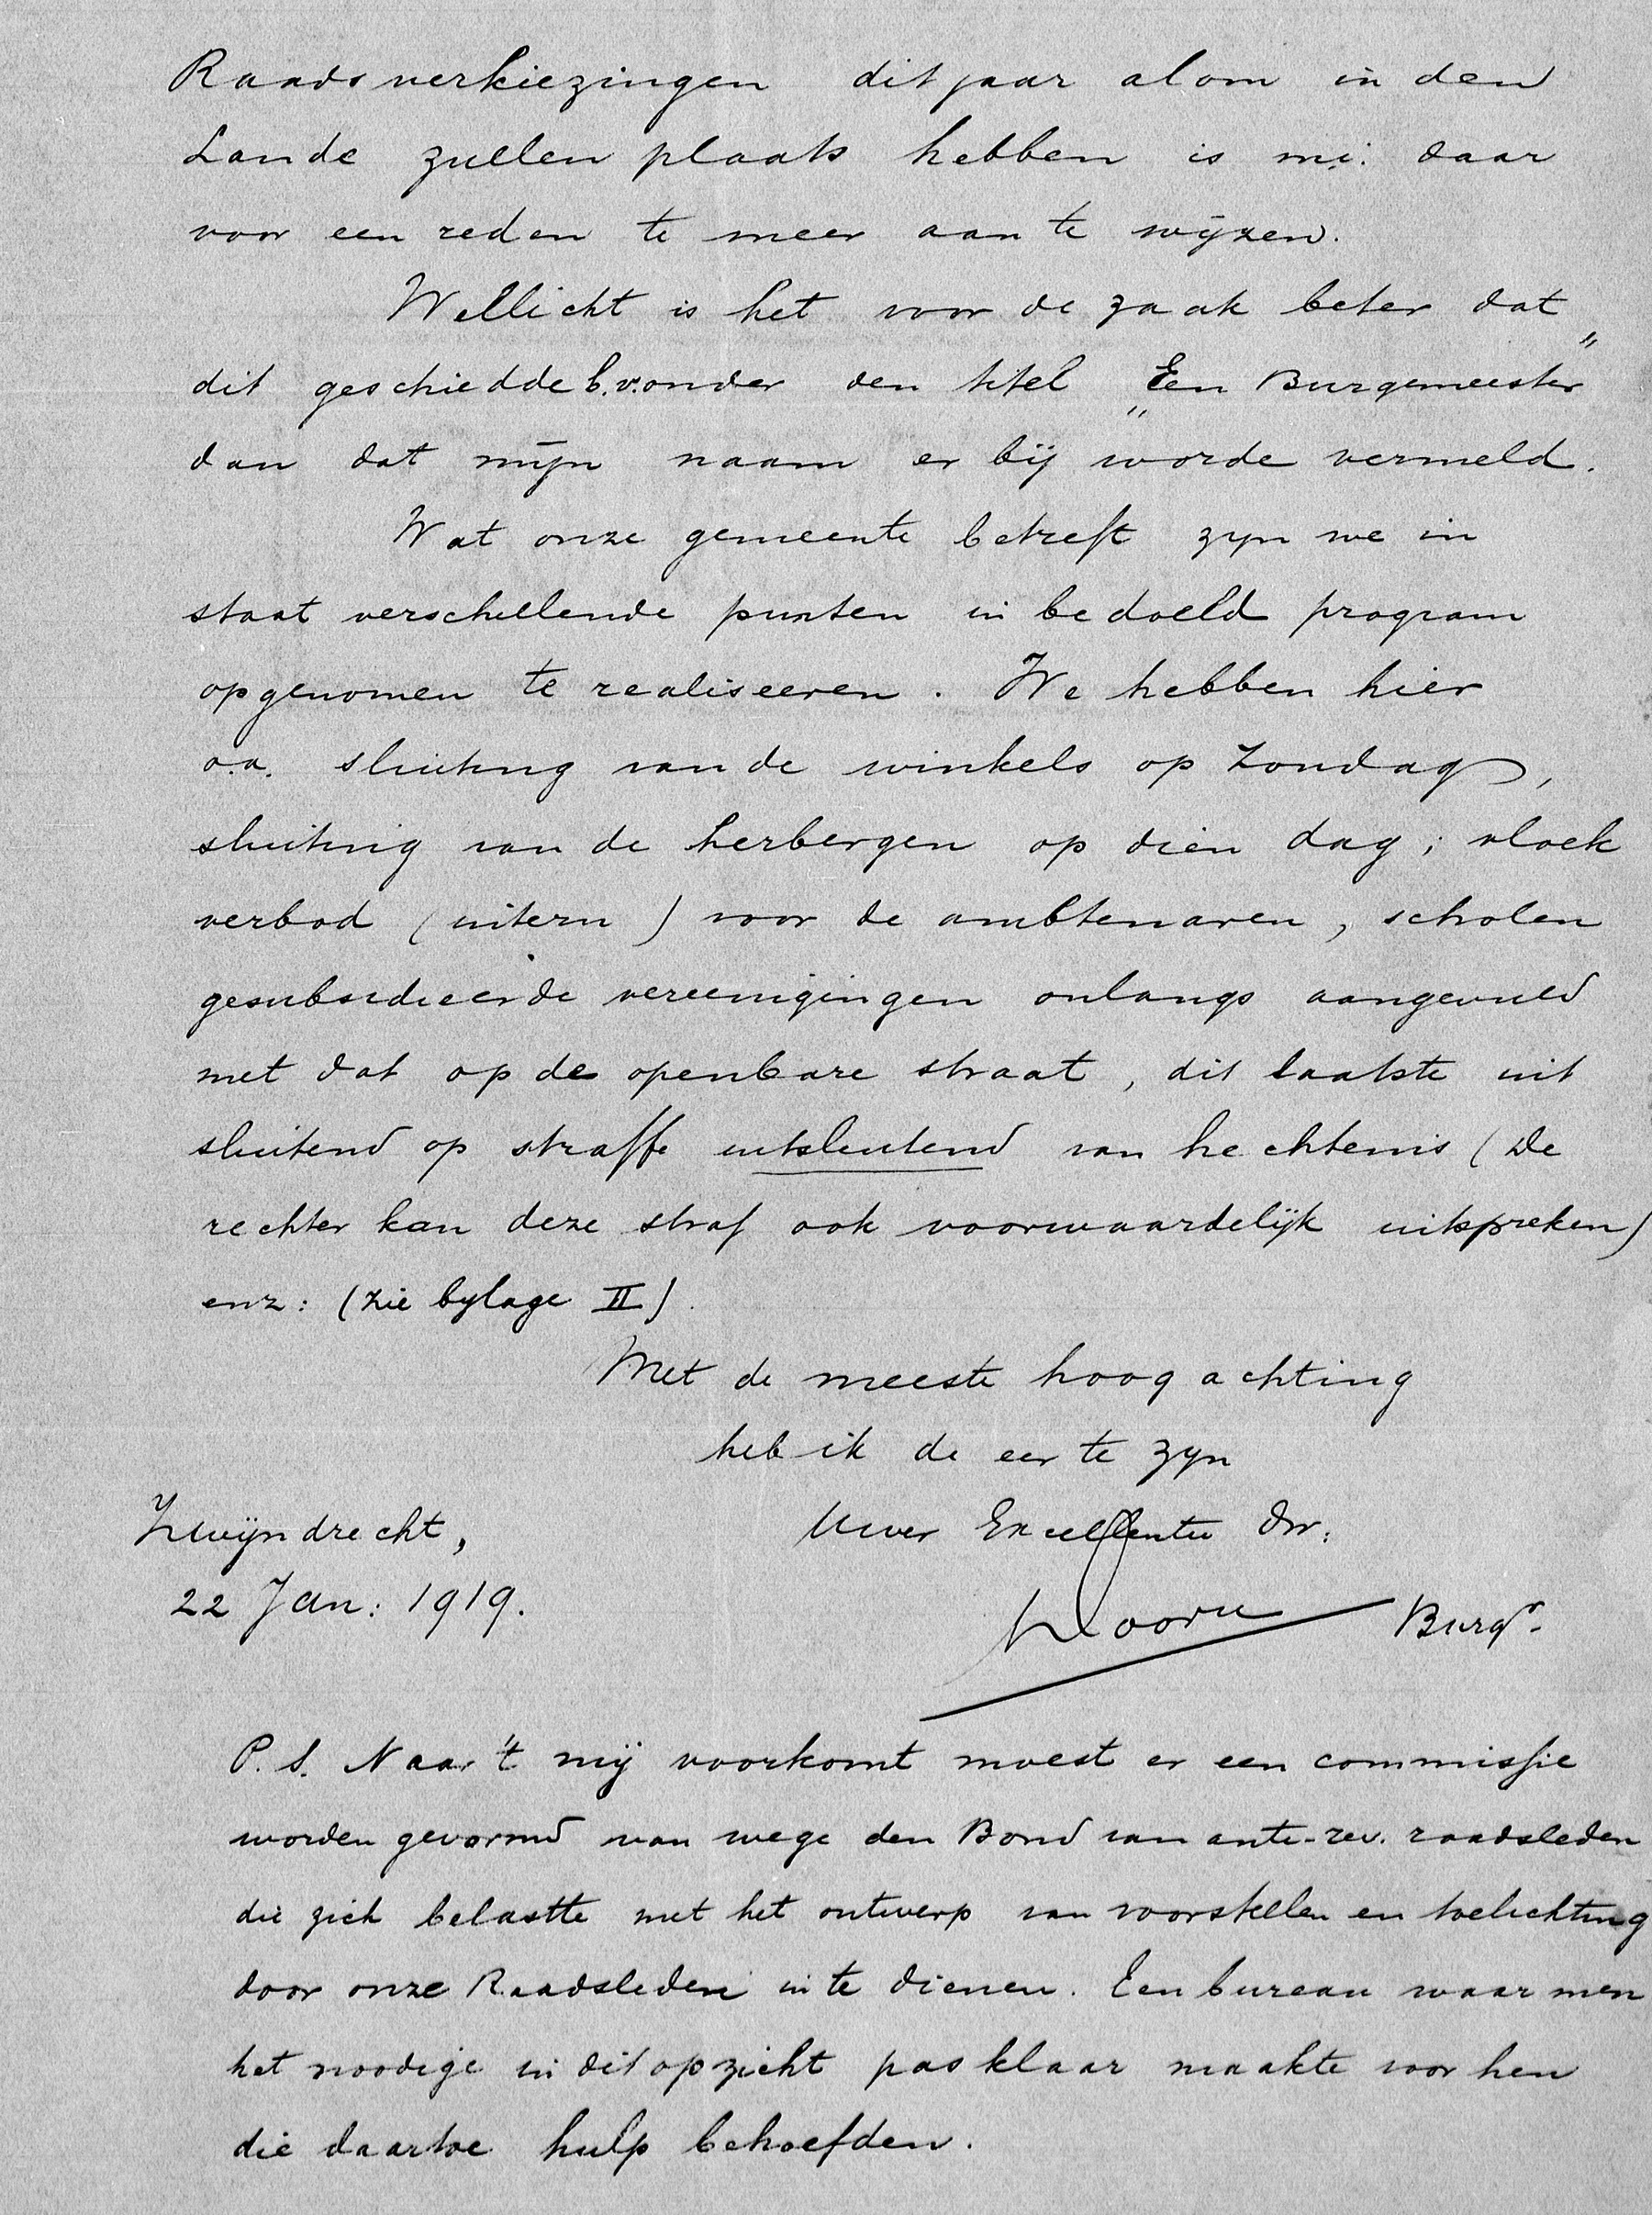 Raadsverkiezingen dit jaar alom in den
Lande zullen plaats hebben is m.i. daar
voor een reden te meer aan te wijzen.
Wellicht is het voor de zaak beter dat
dit geschiedde b.v. onder den titel „Een Burgemeester”
dan dat mijn naam er bij worde vermeld.
Wat onze gemeente betreft zyn we in
staat verschillende punten in bedoeld program
opgenomen te realiseeren. We hebben hier
o.a. sluiting van de winkels op Zondag,
sluiting van de herbergen op dien dag; vloek
verbod (intern) voor de ambtenaren, scholen
gesubsidieerde vereenigingen onlangs aangevuld
met dat op de openbare straat, dit laatste uit
sluitend op straffe uitsluitend van hechtenis (De
rechter kan deze straf ook voorwaardelijk uitspreken)
enz: (zie bylage II).
Met de meeste hoogachting
heb ik de eer te zyn
Zwijndrecht, Uwer Excellentie Dr:
22 Jan: 1919. Burgr.
P.S. Naar 't mij voorkomt moest er een commissie
worden gevormd van wege den Bond van anti-rev. raadsleden
die zich belastte met het ontwerp van voorstellen en toelichting
door onze Raadsleden in te dienen. Een bureau waar men
het noodige in dit opzicht pasklaar maakte voor hen
die daartoe hulp behoefden.